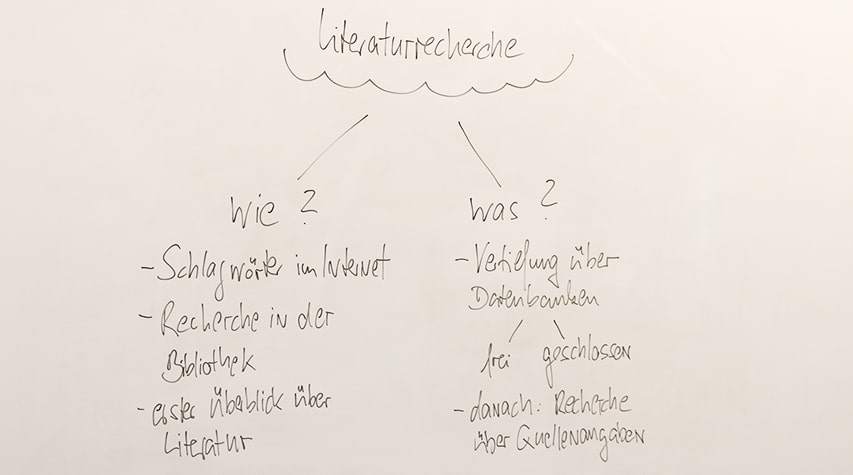 Literaturrecherche
wie ?
- Schlagwörter im Internet
- Recherche in der
Bibliothek
- erster überblick über
Literatur
was ?
- Vertiefung über
Datenbanken
frei geschlossen
- danach: Recherche
über Quellenangaben